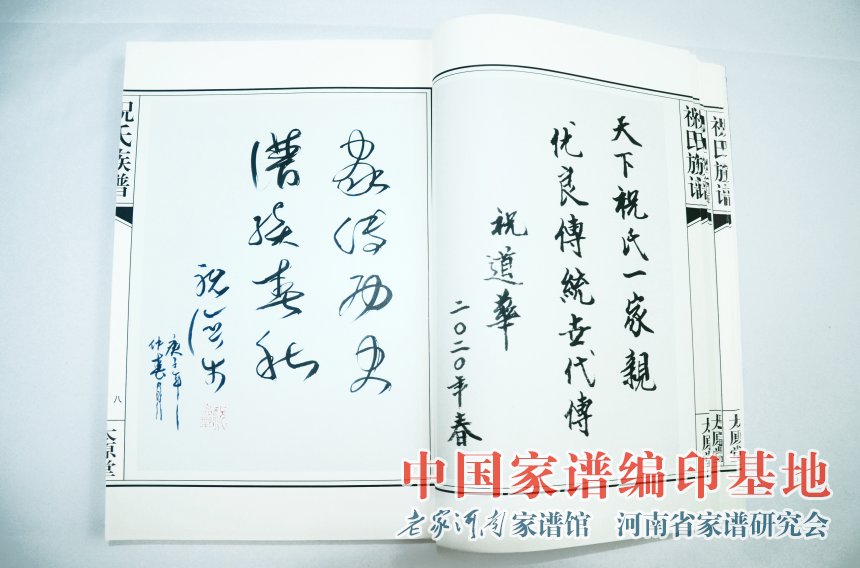 祝氏族谱
天下祝氏一家親
优良傳統世代傳
祝道華
二〇二〇年春
太原堂
家传历史
谱续春秋
庚子年
仲春月
祝氏族谱
八
太原堂
中国家谱编印基地
老家河南家谱馆 河南省家谱研究会